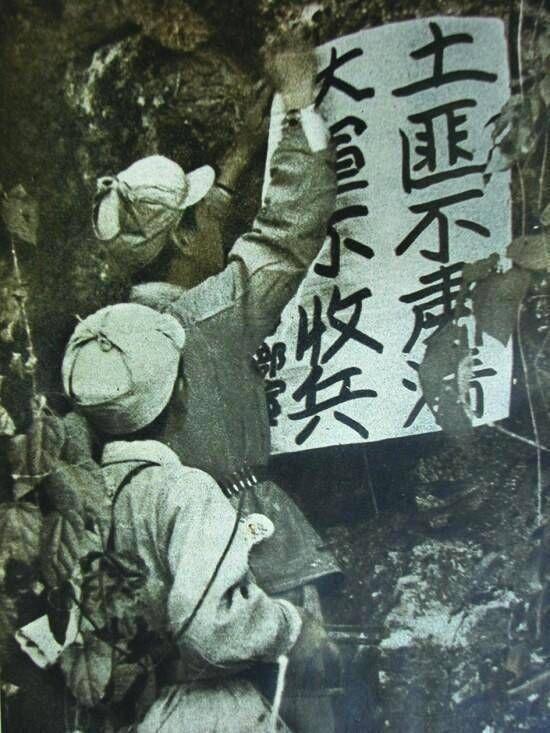 土匪不肃清
大軍不收兵